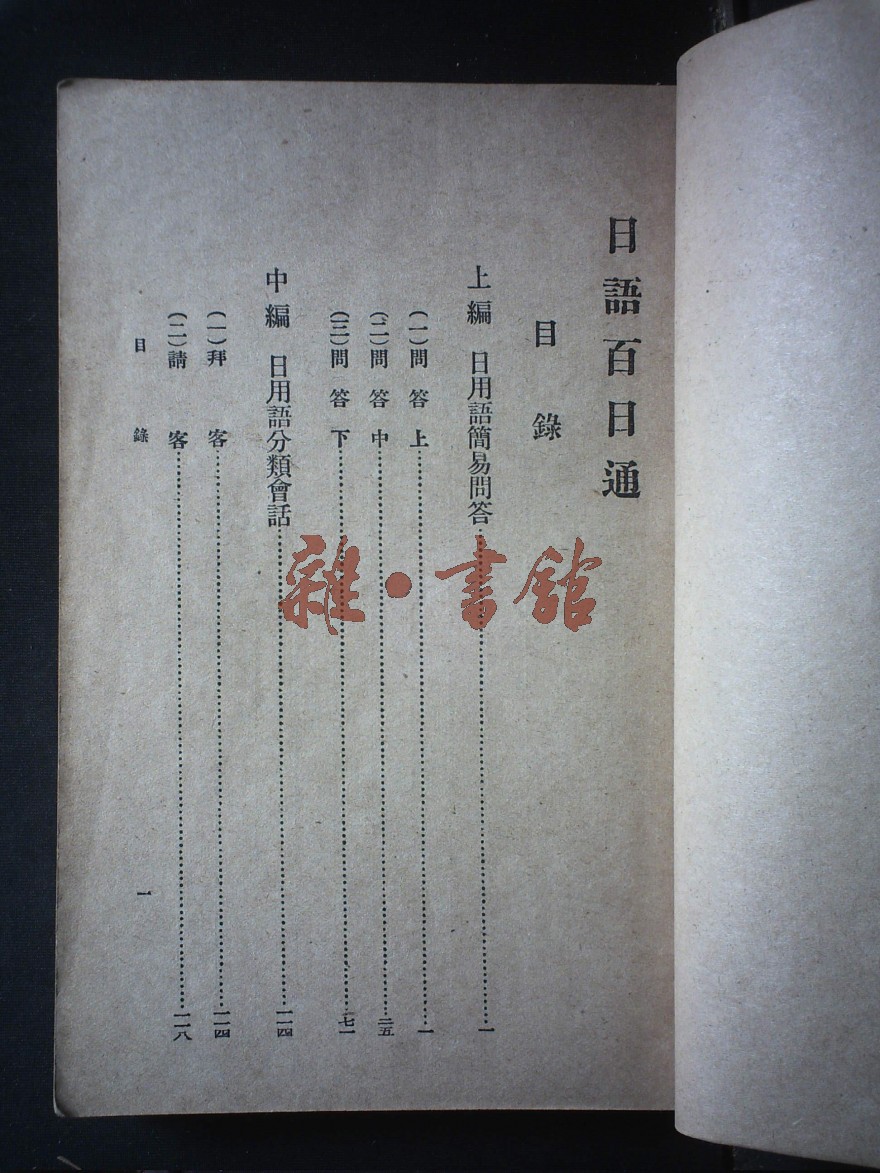 日語百日通
目錄
上編 日用語簡易問答……一
(一)問答上……一
(二)問答中……二五
(三)問答下……七一
中編 日用語分類會話……一一四
(一)拜客……一一四
(二)請客……一一八
目錄 一
雜·書館